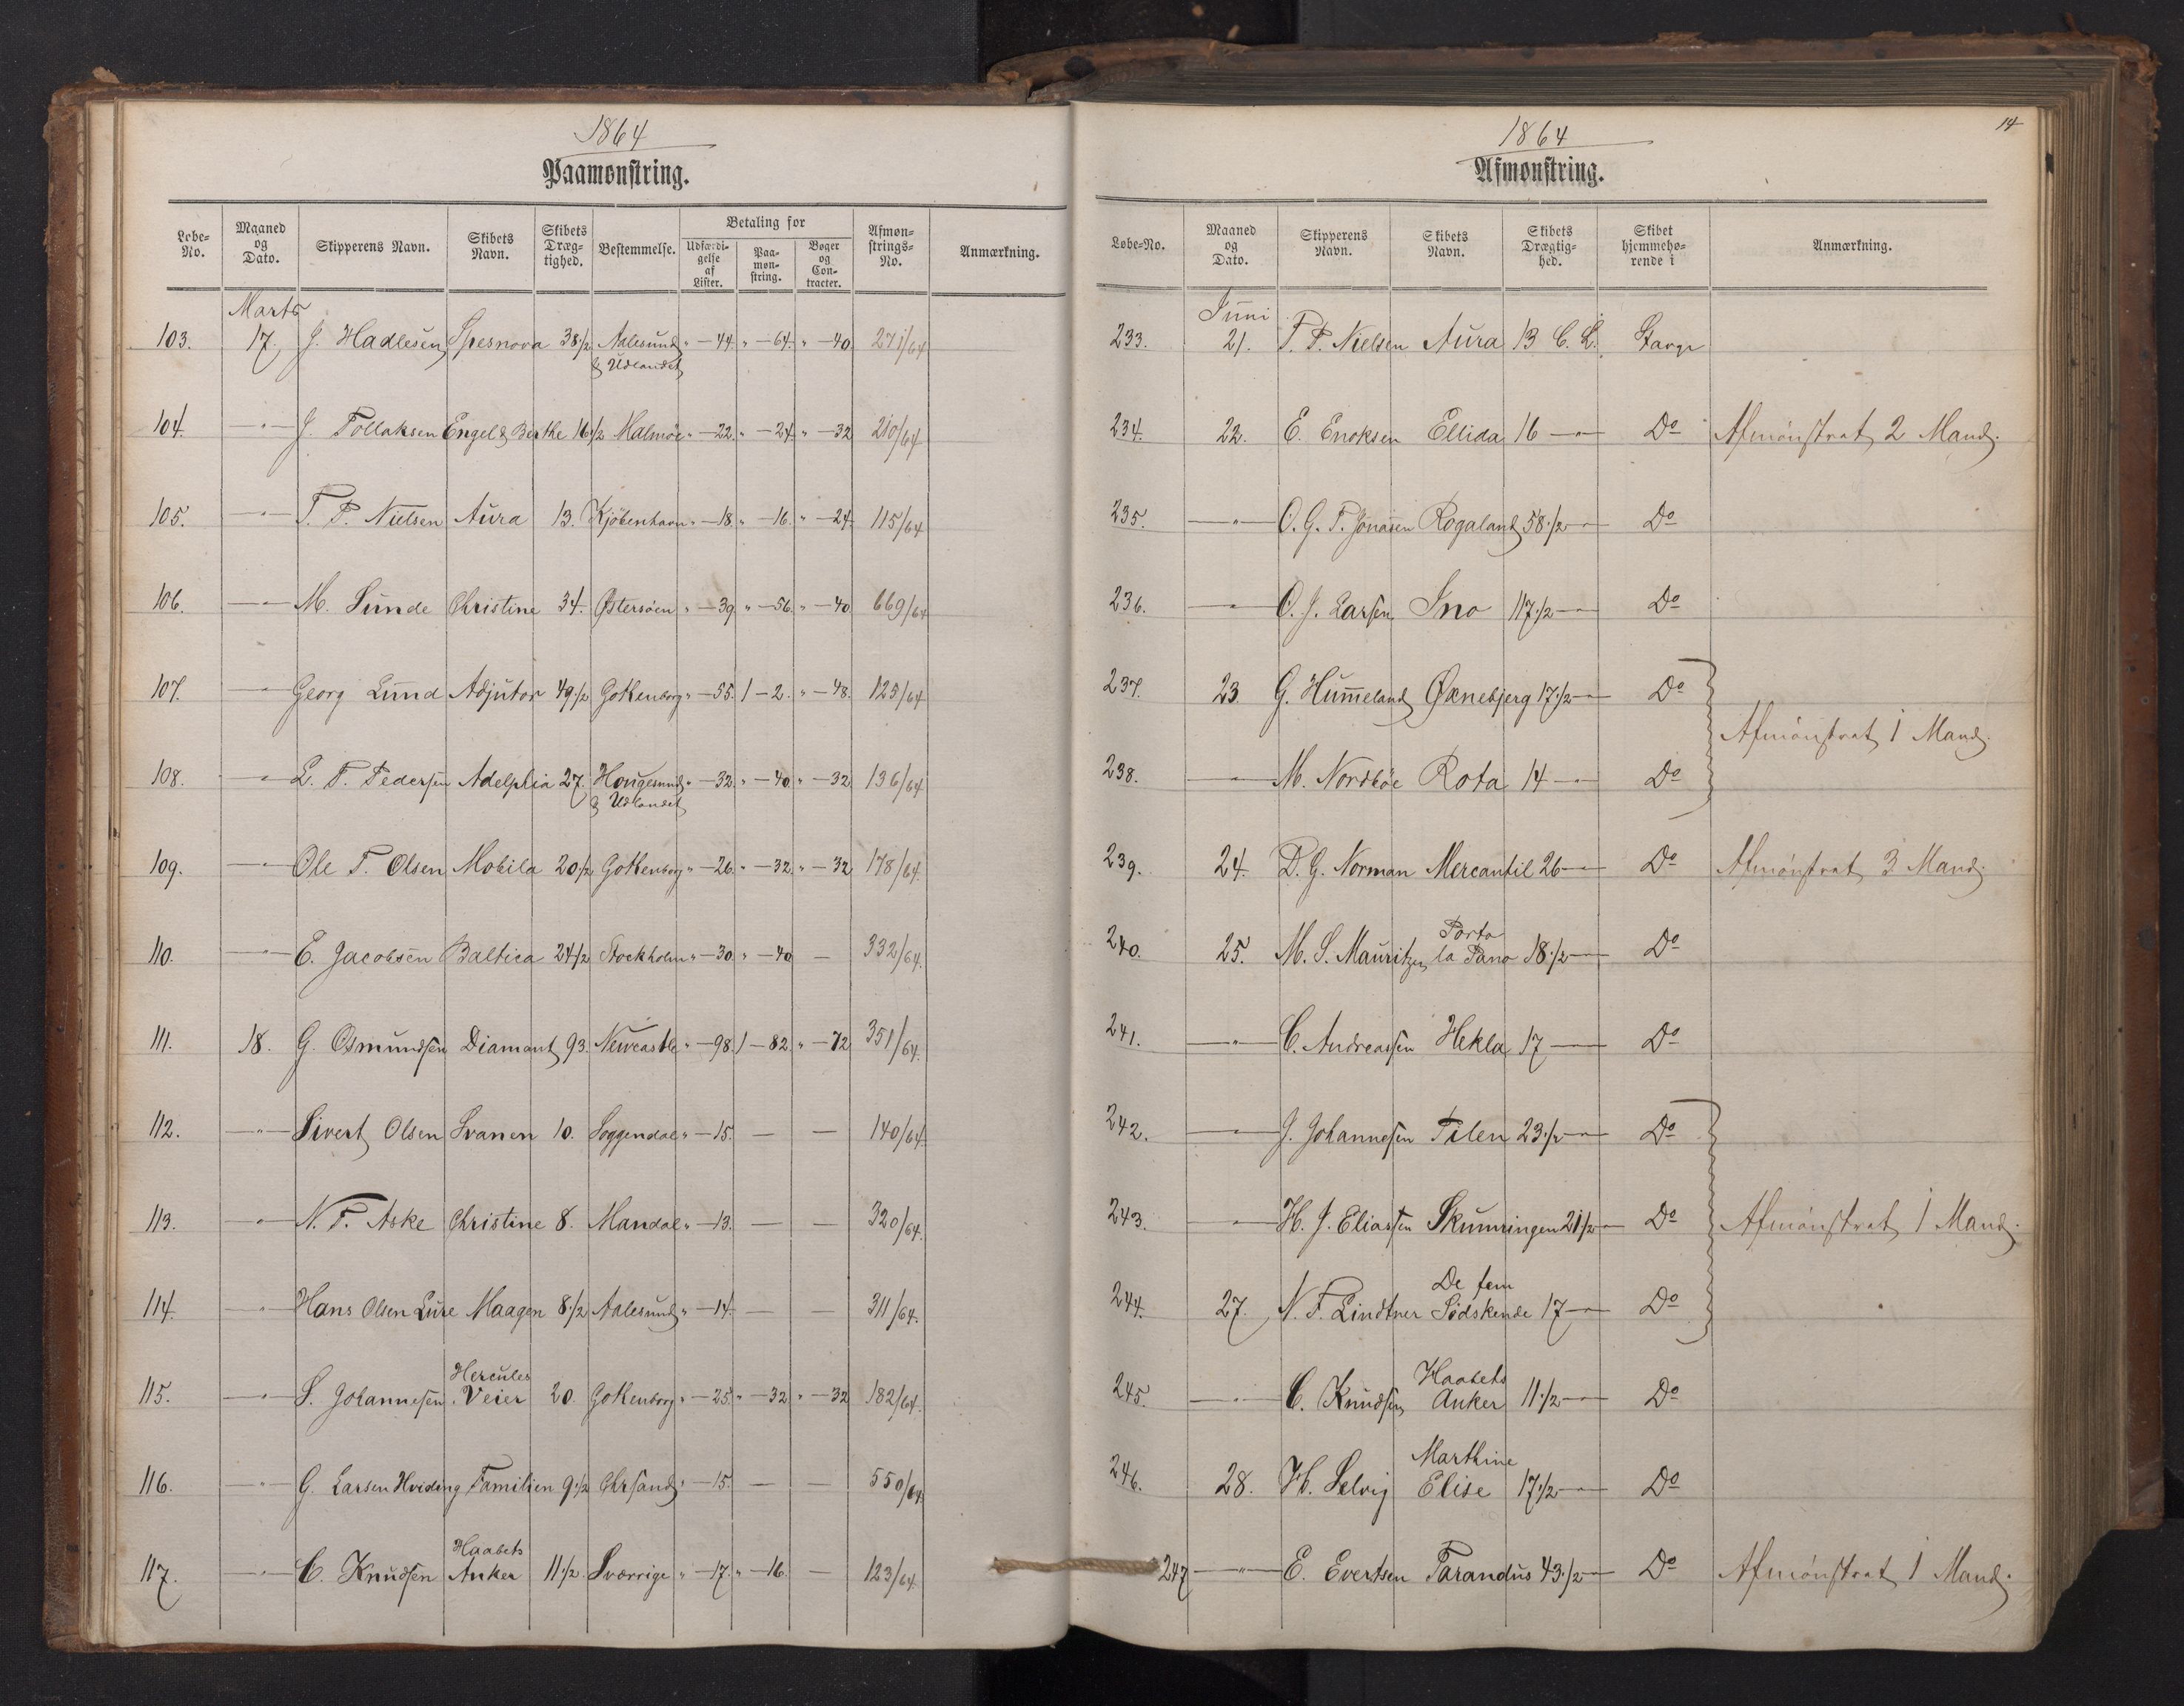 1864
Paamønstring.
Løbe-No. Maaned og Dato. Skipperens Navn. Skibets Navn. Skibets Drægtighed. Bestemmelse. Betaling for Udfærdigelse af Lister. Paamønstring. Bøger og Contracter. Afmønstrings-No. Anmærkning.
Marts
103. 17. J. Hadlesen Spesnova 38 1/2 Aalesund & Udlandet " — 44. " — 64. " — 40 271/64
104. —"— J. Tollaksen Engel & Berthe 16 1/2 Malmöe " — 22. " — 24. " — 32 210/64
105. —"— T. P. Nielsen Aura 13. Kjöbenhavn " — 18. " — 16. " — 24. 115/64
106. —"— M. Sunde Christine 34. Østersöen " — 39 " — 56. " — 40 669/64
107. —"— Georg Lund Adjutor 49 1/2 Gothenborg " — 55. 1 — 2. " — 48. 125/64
108. —"— L. T. Pedersen Adelphia 27. Hougesund & Udlandet " — 32. " — 40. " — 32 136/64
109. —"— Ole T. Olsen Mobila 20 1/2 Gothenborg " — 26. " — 32. " — 32 178/64.
110. —"— E. Jacobsen Baltica 24 1/2 Stockholm " — 30. " — 40 — 332/64.
111. 18. G. Osmundsen Diamant 93. Newcastle " — 98. 1 — 82. " — 72 351/64.
112. —"— Sivert Olsen Svanen 10. Soggendal " — 15. — — 140/64.
113. —"— N. T. Aske Christine 8. Mandal " — 13. — — 320/64.
114. —"— Hans Olsen Lure Maagen 8 1/2 Aalesund " — 14. — — 311/64.
115. —"— S. Johannesen Hercules Veier 20. Gothenborg " — 25. " — 32 " — 32 182/64.
116. —"— G. Larsen Hviding Familien 9 1/2 Chrsand " — 15. — — 550/64
117. —"— C. Knudsen Haabets Anker 11 1/2. Sværrige " — 17. " — 16. — 123/64.
14
1864
Afmønstring.
Løbe-No. Maaned og Dato. Skipperens Navn. Skibets Navn. Skibets Drægtighed. Skibet hjemmehørende i Anmærkning.
Juni
233. 21. T. P. Nielsen Aura 13 C. L. Stavgr
234. 22. E. Enoksen Ellida 16 —"— Do Afmönstrat 2 Mand.
235. —"— O. G. T. Jonasen Rogaland 58 1/2 —"— Do
236. —"— O. J. Larsen Ino 117 1/2 —"— Do
237. 23. G. Hummeland Øxnebjerg 17 1/2 —"— Do
Afmönstrat 1 Mand.
238. —"— M. Nordböe Rota 14 —"— Do
239. 24. D. G. Norman Mercantil 26 —"— Do Afmönstrat 3 Mand.
240. 25. M. S. Mauritzen Porto la Pano 18 1/2 —"— Do
241. —"— C. Andreassen Hekla 17 —"— Do
242. —"— J. Johannesen Pilen 23 1/2 —"— Do
243. —"— H. J. Eliassen Skumringen 21 1/2 —"— Do Afmönstrat 1 Mand.
244. 27. N. F. Lindtner De fem Södskende 17 —"— Do
245. —"— C. Knudsen Haabets Anker 11 1/2 —"— Do
246. 28. H. Selvig Marthine Elise 17 1/2 —"— Do
247 —"— E. Evertsen Tarandus 43 1/2 —"— Do Afmönstrat 1 Mand.